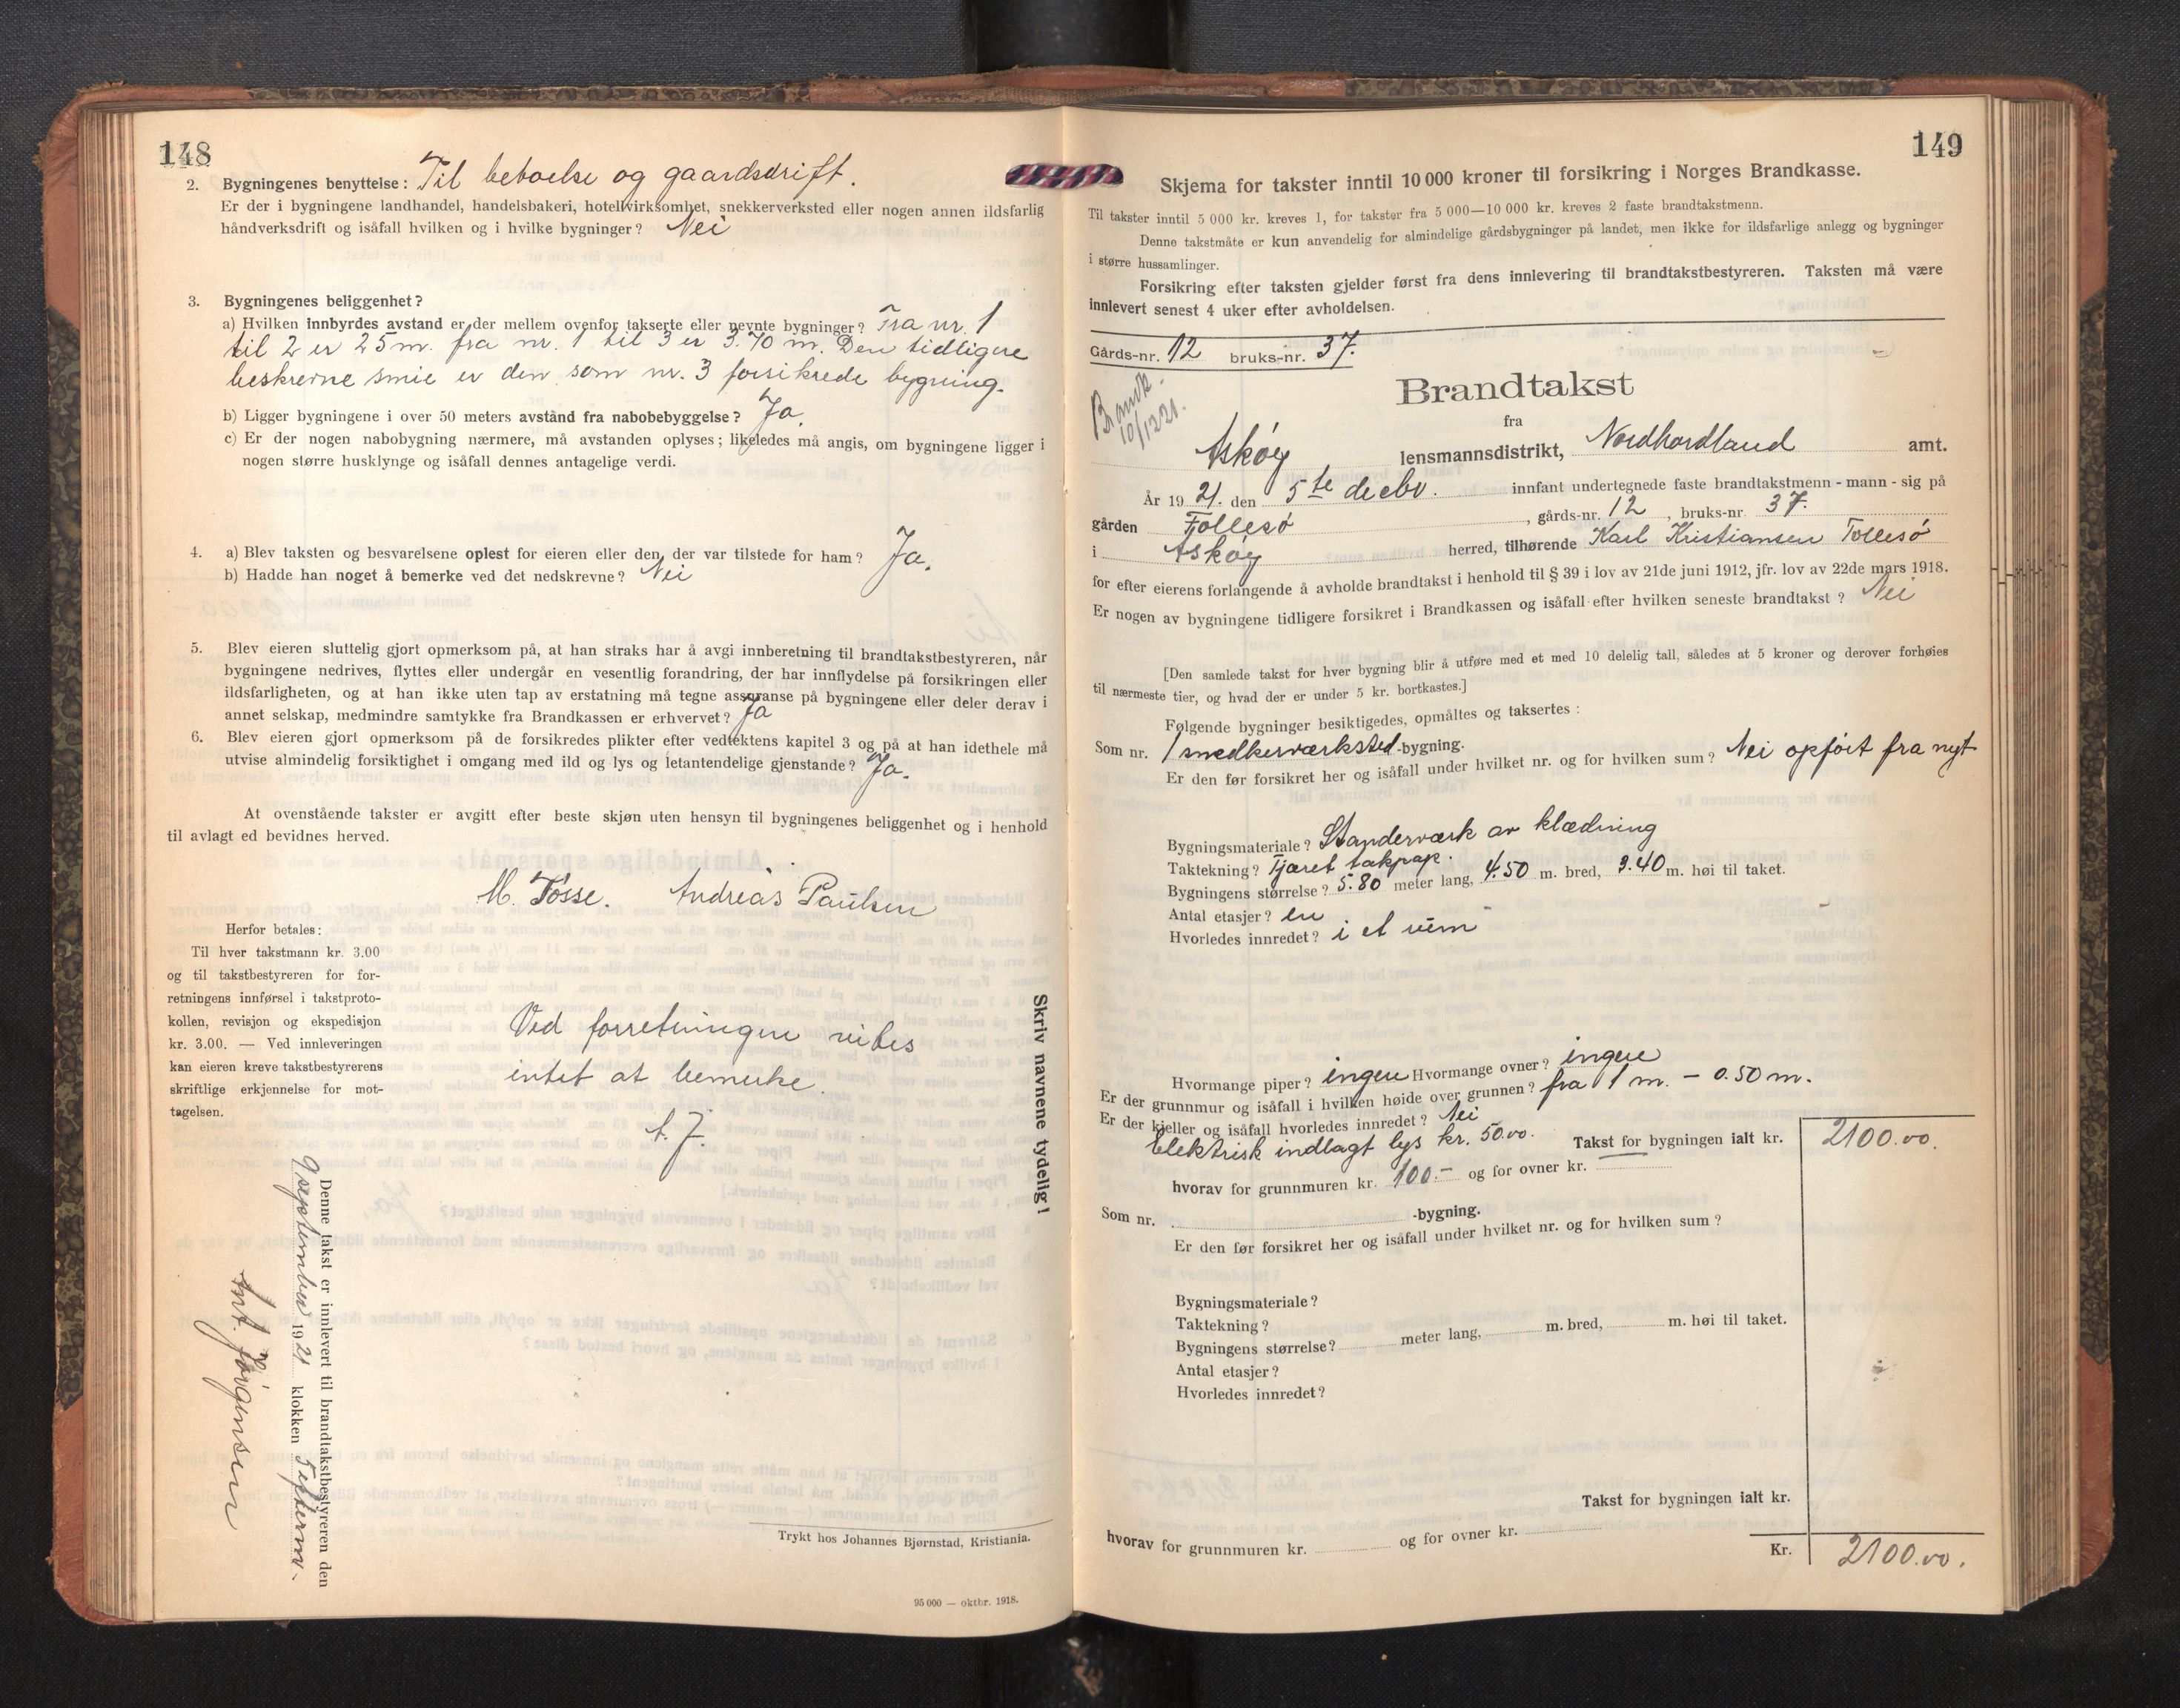 148
2. Bygningenes benyttelse: Til beboelse og gaardsdrift.
Er der i bygningene landhandel, handelsbakeri, hotellvirksomhet, snekkerverksted eller nogen annen ildsfarlig
håndverksdrift og isåfall hvilken og i hvilke bygninger? Nei
3. Bygningenes beliggenhet?
a) Hvilken innbyrdes avstand er der mellem ovenfor takserte eller nevnte bygninger? Fra nr. 1
til 2 er 25 m. fra nr. 1 til 3 er 3.70 m. Den tidligere
beskrevne smie er den som nr. 3 forsikrede bygning.
b) Ligger bygningene i over 50 meters avstånd fra nabobebyggelse? Ja.
c) Er der nogen nabobygning nærmere, må avstanden oplyses; likeledes må angis, om bygningene ligger i
nogen større husklynge og isåfall dennes antagelige verdi.
4. a) Blev taksten og besvarelsene oplest for eieren eller den, der var tilstede for ham? Ja.
b) Hadde han noget å bemerke ved det nedskrevne? Nei
5. Blev eieren sluttelig gjort opmerksom på, at han straks har å avgi innberetning til brandtakstbestyreren, når
bygningene nedrives, flyttes eller undergår en vesentlig forandring, der har innflydelse på forsikringen eller
ildsfarligheten, og at han ikke uten tap av erstatning må tegne assuranse på bygningene eller deler derav i
annet selskap, medmindre samtykke fra Brandkassen er erhvervet? Ja
6. Blev eieren gjort opmerksom på de forsikredes plikter efter vedtektens kapitel 3 og på at han idethele må
utvise almindelig forsiktighet i omgang med ild og lys og letantendelige gjenstande? Ja.
At ovenstående takster er avgitt efter beste skjøn uten hensyn til bygningenes beliggenhet og i henhold
til avlagt ed bevidnes herved.
M. Tosse. Andreas Paulsen
Herfor betales:
Til hver takstmann kr. 3.00
og til takstbestyreren for for-
retningens innførsel i takstproto-
kollen, revisjon og ekspedisjon
kr. 3.00. — Ved innleveringen
kan eieren kreve takstbestyrerens
skriftlige erkjennelse for mot-
tagelsen.
Ved forretningen vides
intet at bemerke.
A. J.
Skriv navnene tydelig!
Denne takst er innlevert til brandtakstbestyreren den
9 september 1921 klokken 5 efterm.
Ant. Jørgensen
Trykt hos Johannes Bjørnstad, Kristiania.
95 000 — oktbr. 1918.
149
Skjema for takster inntil 10 000 kroner til forsikring i Norges Brandkasse.
Til takster inntil 5 000 kr. kreves 1, for takster fra 5 000—10 000 kr. kreves 2 faste brandtakstmenn.
Denne takstmåte er kun anvendelig for almindelige gårdsbygninger på landet, men ikke for ildsfarlige anlegg og bygninger
i større hussamlinger.
Forsikring efter taksten gjelder først fra dens innlevering til brandtakstbestyreren. Taksten må være
innlevert senest 4 uker efter avholdelsen.
Gårds-nr. 12 bruks-nr. 37.
Brandk.
10/12 21.
Brandtakst
fra
Askøy lensmannsdistrikt, Nordhordland amt.
År 1921. den 5te decbr. innfant undertegnede faste brandtakstmenn - mann - sig på
gården Follesø, gårds-nr. 12, bruks-nr. 37.
i Askøy herred, tilhørende Karl Kristiansen Follesø
for efter eierens forlangende å avholde brandtakst i henhold til § 39 i lov av 21de juni 1912, jfr. lov av 22de mars 1918.
Er nogen av bygningene tidligere forsikret i Brandkassen og isåfall efter hvilken seneste brandtakst? Nei
[Den samlede takst for hver bygning blir å utføre med et med 10 delelig tall, således at 5 kroner og derover forhøies
til nærmeste tier, og hvad der er under 5 kr. bortkastes.]
Følgende bygninger besiktigedes, opmåltes og taksertes:
Som nr. 1 snedkerværksted-bygning.
Er den før forsikret her og isåfall under hvilket nr. og for hvilken sum? Nei opført fra nyt
Bygningsmateriale? Standerværk av klædning
Taktekning? Tjæret takpap.
Bygningens størrelse? 5.80 meter lang, 4.50 m. bred, 3.40 m. høi til taket.
Antal etasjer? en
Hvorledes innredet? i et rum
Hvormange piper? ingen Hvormange ovner? ingen
Er der grunnmur og isåfall i hvilken høide over grunnen? fra 1 m. - 0.50 m.
Er der kjeller og isåfall hvorledes innredet? Nei
Elektrisk indlagt lys kr. 50.00. Takst for bygningen ialt kr. 2100.00.
hvorav for grunnmuren kr. 100.- og for ovner kr.
Som nr. -bygning.
Er den før forsikret her og isåfall under hvilket nr. og for hvilken sum?
Bygningsmateriale?
Taktekning?
Bygningens størrelse? meter lang, m. bred, m. høi til taket.
Antal etasjer?
Hvorledes innredet?
Takst for bygningen ialt kr.
hvorav for grunnmuren kr. og for ovner kr.
Kr. 2100.00.